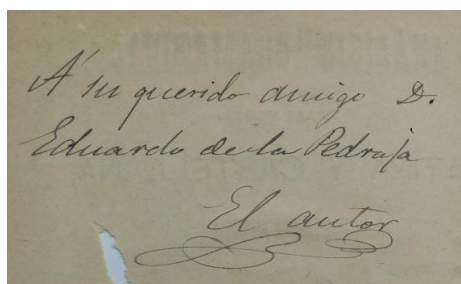 A su querido amigo D.
Eduardo de la Pedraja
El autor